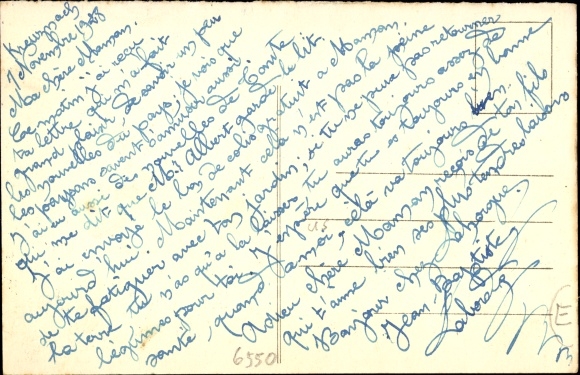 Kreuznach
7 Novembre 1928
Ma chère Maman.
Ce matin j'ai reçu
ta lettre qui m'a fait
grand plaisir de savoir un peu
les nouvelles du pays, je vois que
les garçons avant aussi.
J'ai eu aussi des nouvelles de Conte
qui me dit que Mr Albert garde le lit.
J'ai envoyé le bon de colis gratuit a Maman.
aujourd'hui. Maintenant cella n'est pas la peine
de te fatiguer avec ton jardin, si tu ne peux pas retourner
la terre tu n'as qu'a la laisser, tu auras toujours assez de
légumes pour toi. J'espère que tu es toujours en bonne
santé, quand a moi, cela va toujours bien.
Adieu chère Maman, reçois de ton fils
qui t'aime bien ses plus tendres baisers
Bonjour chez Laborque.
Jean Baptiste
6550
E